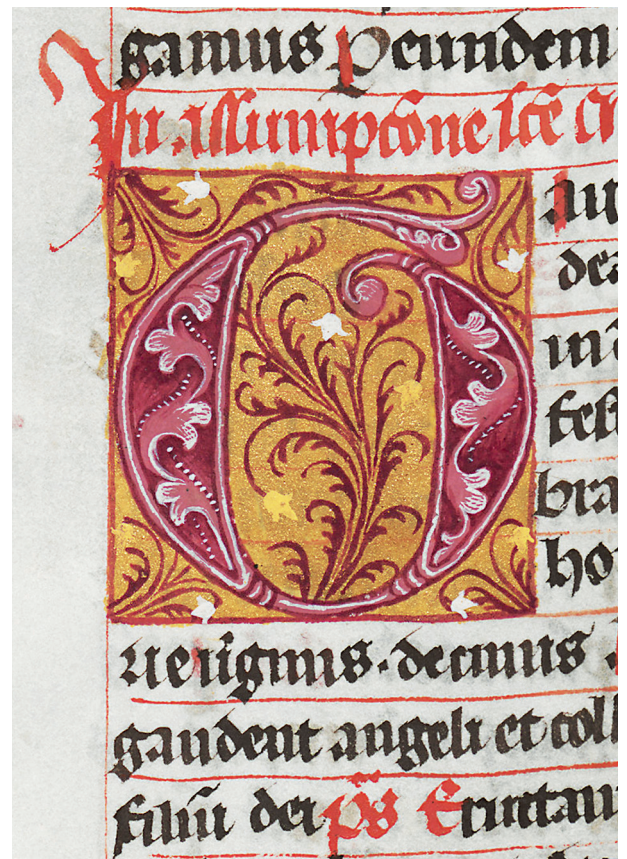 gamus Peundem
In assumptõne scẽ
Gau
dea
in
fest
bra
ho
ne virginis. de cuius
gaudent angeli et coll
filiũ dei p̃s Eructau